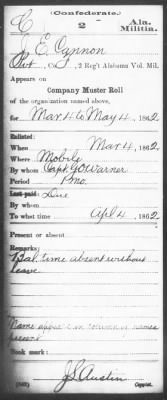 (Confederate.)
C 2 Ala. Militia.
J. E. Cannon
Pvt, Co , 2 Reg't Alabama Vol. Mil.
Appears on
Company Muster Roll
of the organization named above,
for Mar 4 to May 4, 1862
Enlisted:
When Mar 4, 1862
Where Mobile
By whom Capt. G. O. Warner
Period 1 mo.
Last paid:
By whom Due
To what time Apl 4, 1862
Present or absent
Remarks:
Bal. time absent without
leave
Name appears in column of names
present.
Book mark:
J S Austin
Copyist.